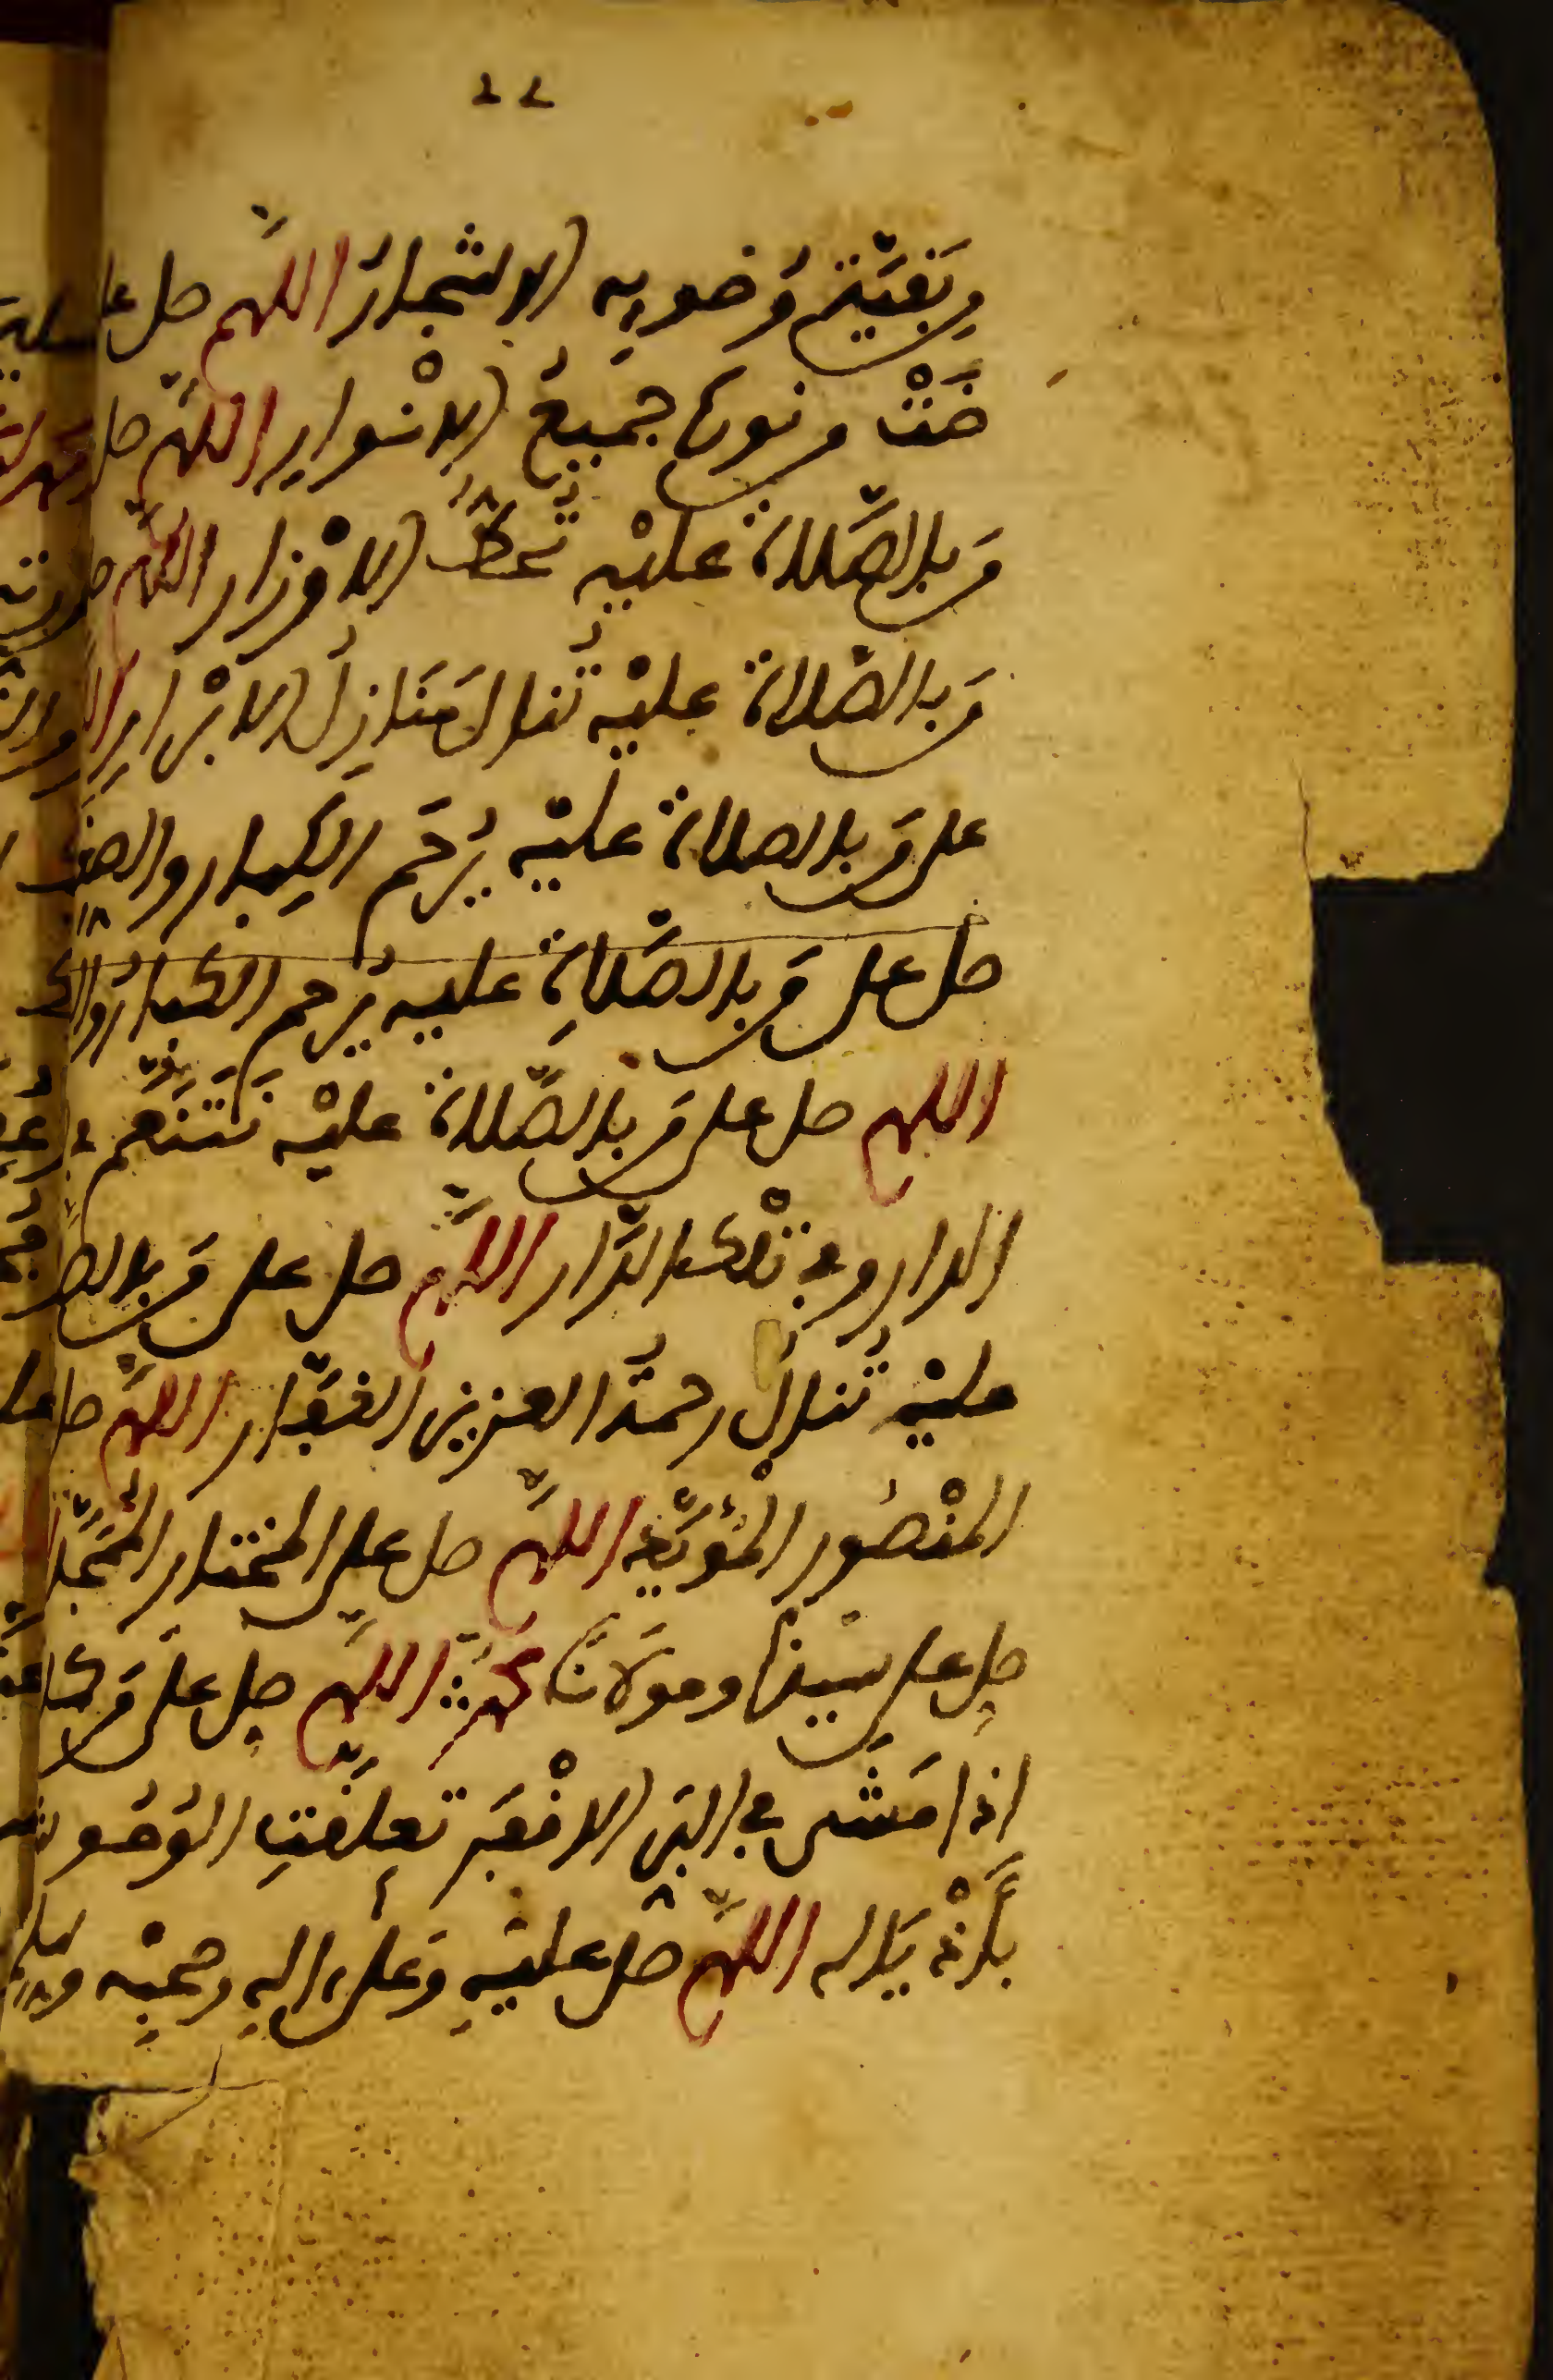 ٢٢
من بقية وضوءه الاشجار اللهم صل
ضت من نوره جميع الانوار اللهم صل
من بالصلاة عليه تحط الاوزار اللهم
من بالصلاة عليه تنال منازل الابرار
على من بالصلاة عليه يرحم الكبار والصغا
صل على من بالصلاة عليه يرحم الكبار
اللهم صل على من بالصلاة عليه نتنعم
الدار وفي تلك الدار اللهم صل على من بالصلا
عليه تنال رحمة العزيز الغفار اللهم صل
المنصور المؤيد اللهم صل على المختار الممجد
صل على سيدنا ومولانا محمد اللهم صل على من كان
اذا مشى في البر الاقفر تعلقت الوحوش
باذياله اللهم صل عليه وعلى اله وصحبه